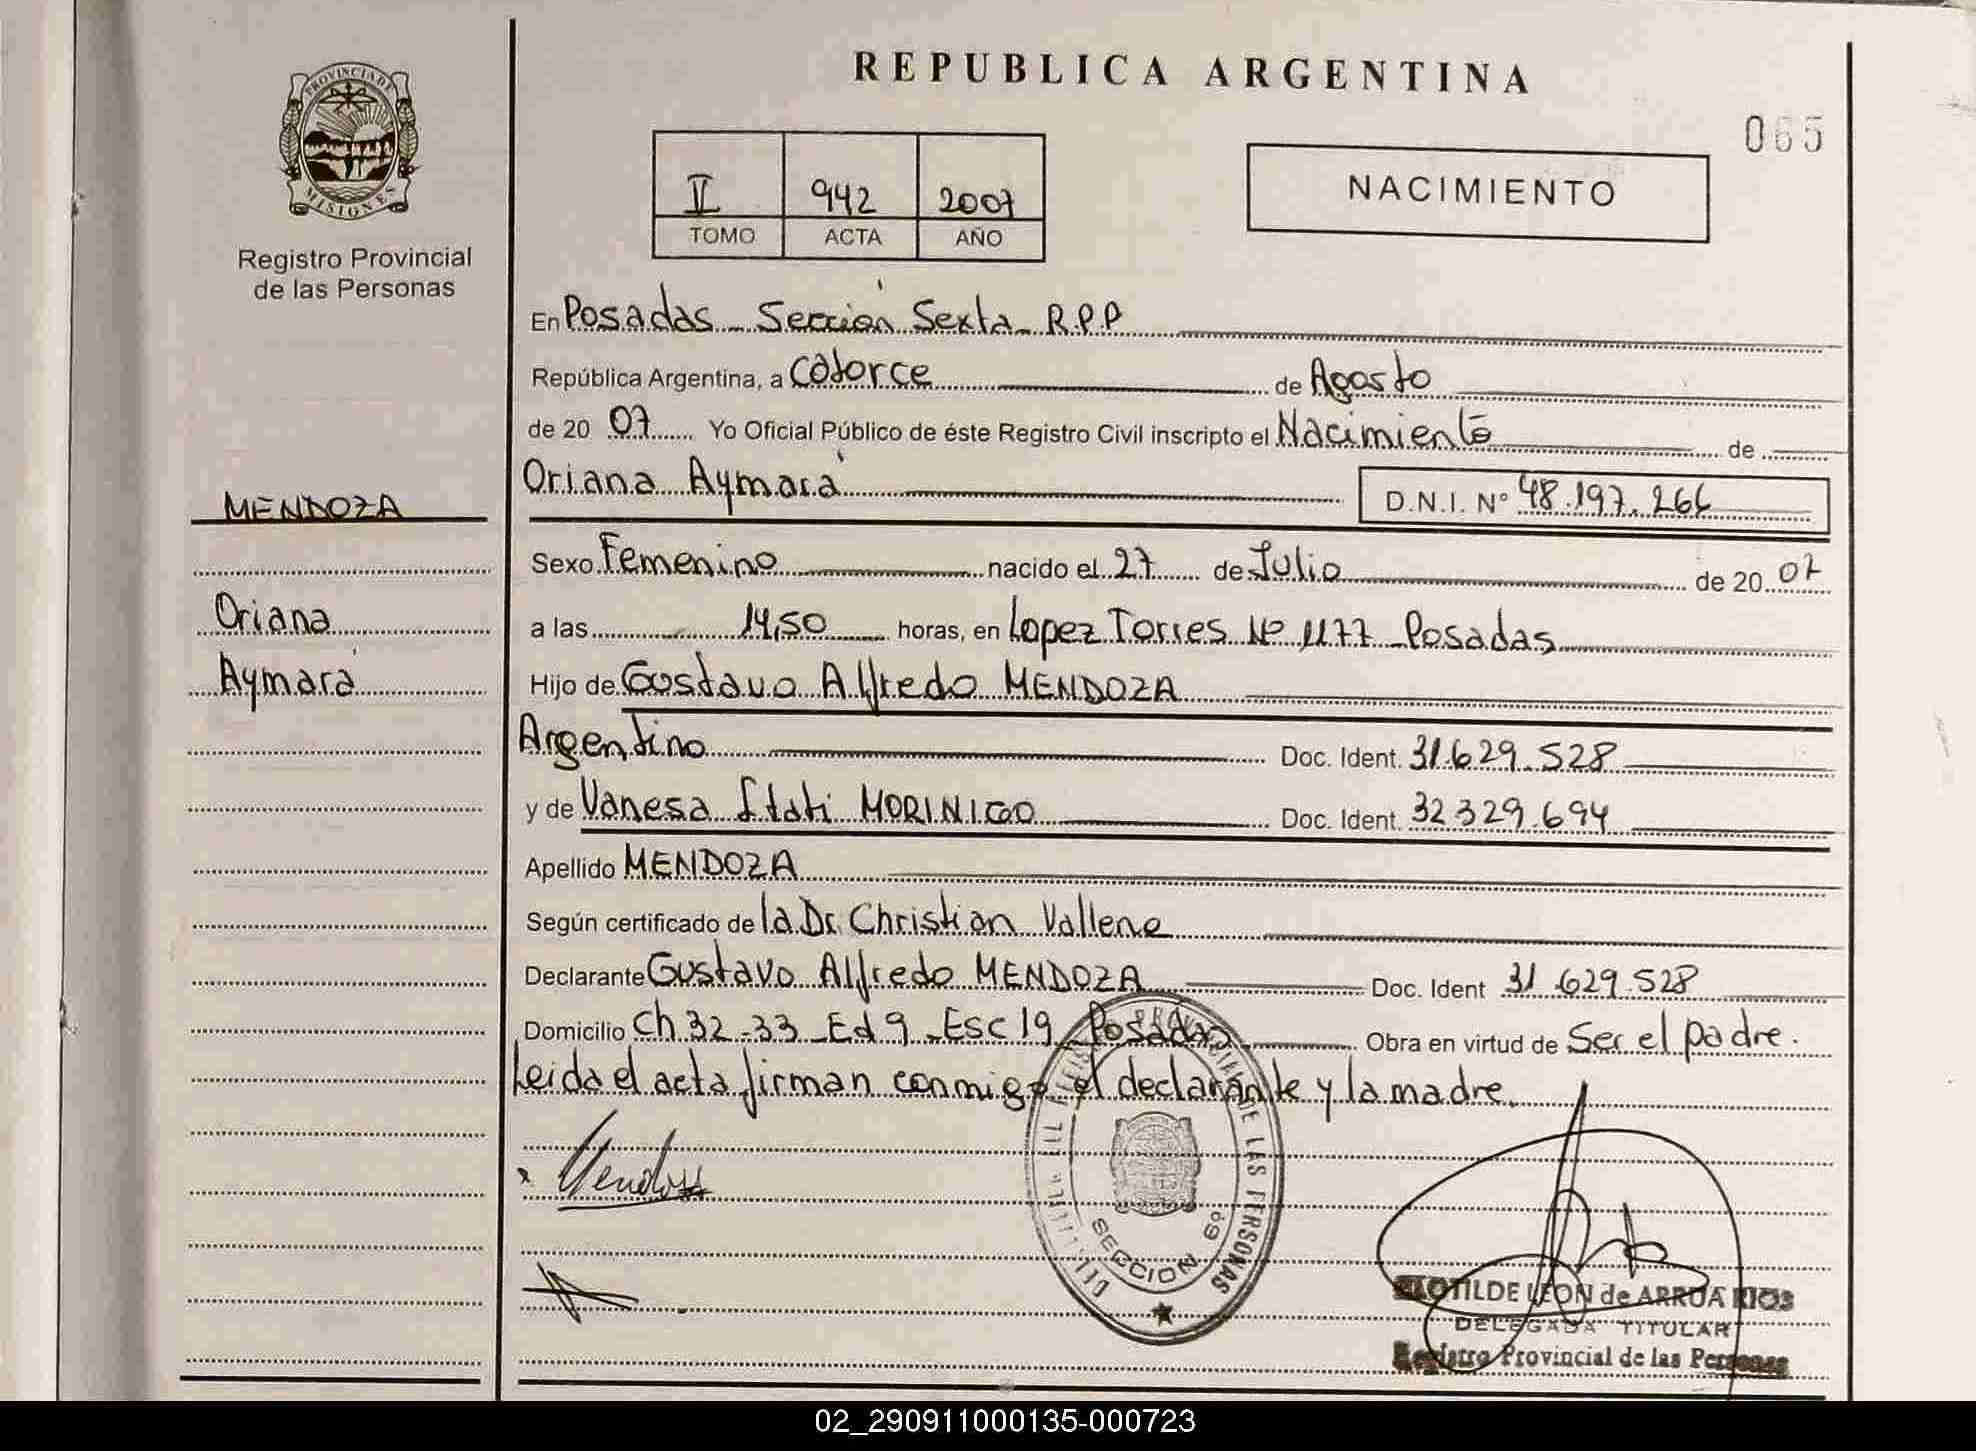 REPUBLICA ARGENTINA
065
PROVINCIA DE
MISIONES
Registro Provincial
de las Personas
II 942 2007
TOMO ACTA AÑO
NACIMIENTO
En Posadas - Sección Sexta - R.P.P
República Argentina, a Catorce de Agosto
de 20 07 Yo Oficial Público de éste Registro Civil inscripto el Nacimiento de
Oriana Aymará D.N.I. Nº 48.197.266
MENDOZA
Sexo Femenino nacido el 27 de Julio de 20 07
Oriana
a las 14,50 horas, en Lopez Torres Nº 1177 - Posadas
Aymará
Hijo de Gustavo Alfredo MENDOZA
Argentino Doc. Ident. 31.629.528
y de Vanesa Itati MORINIGO Doc. Ident. 32.329.694
Apellido MENDOZA
Según certificado de la Dr. Christian Vallene
Declarante Gustavo Alfredo MENDOZA Doc. Ident 31.629.528
Domicilio Ch 32-33 - Ed 9 - Esc 19 - Posadas Obra en virtud de Ser el padre.
Leida el acta firman conmigo el declarante y la madre.
x Mendoza
DE LAS PERSONAS
SECCION 6º
CLOTILDE LEON de ARRUA RIOS
DELEGADA TITULAR
Registro Provincial de las Personas
02_290911000135-000723